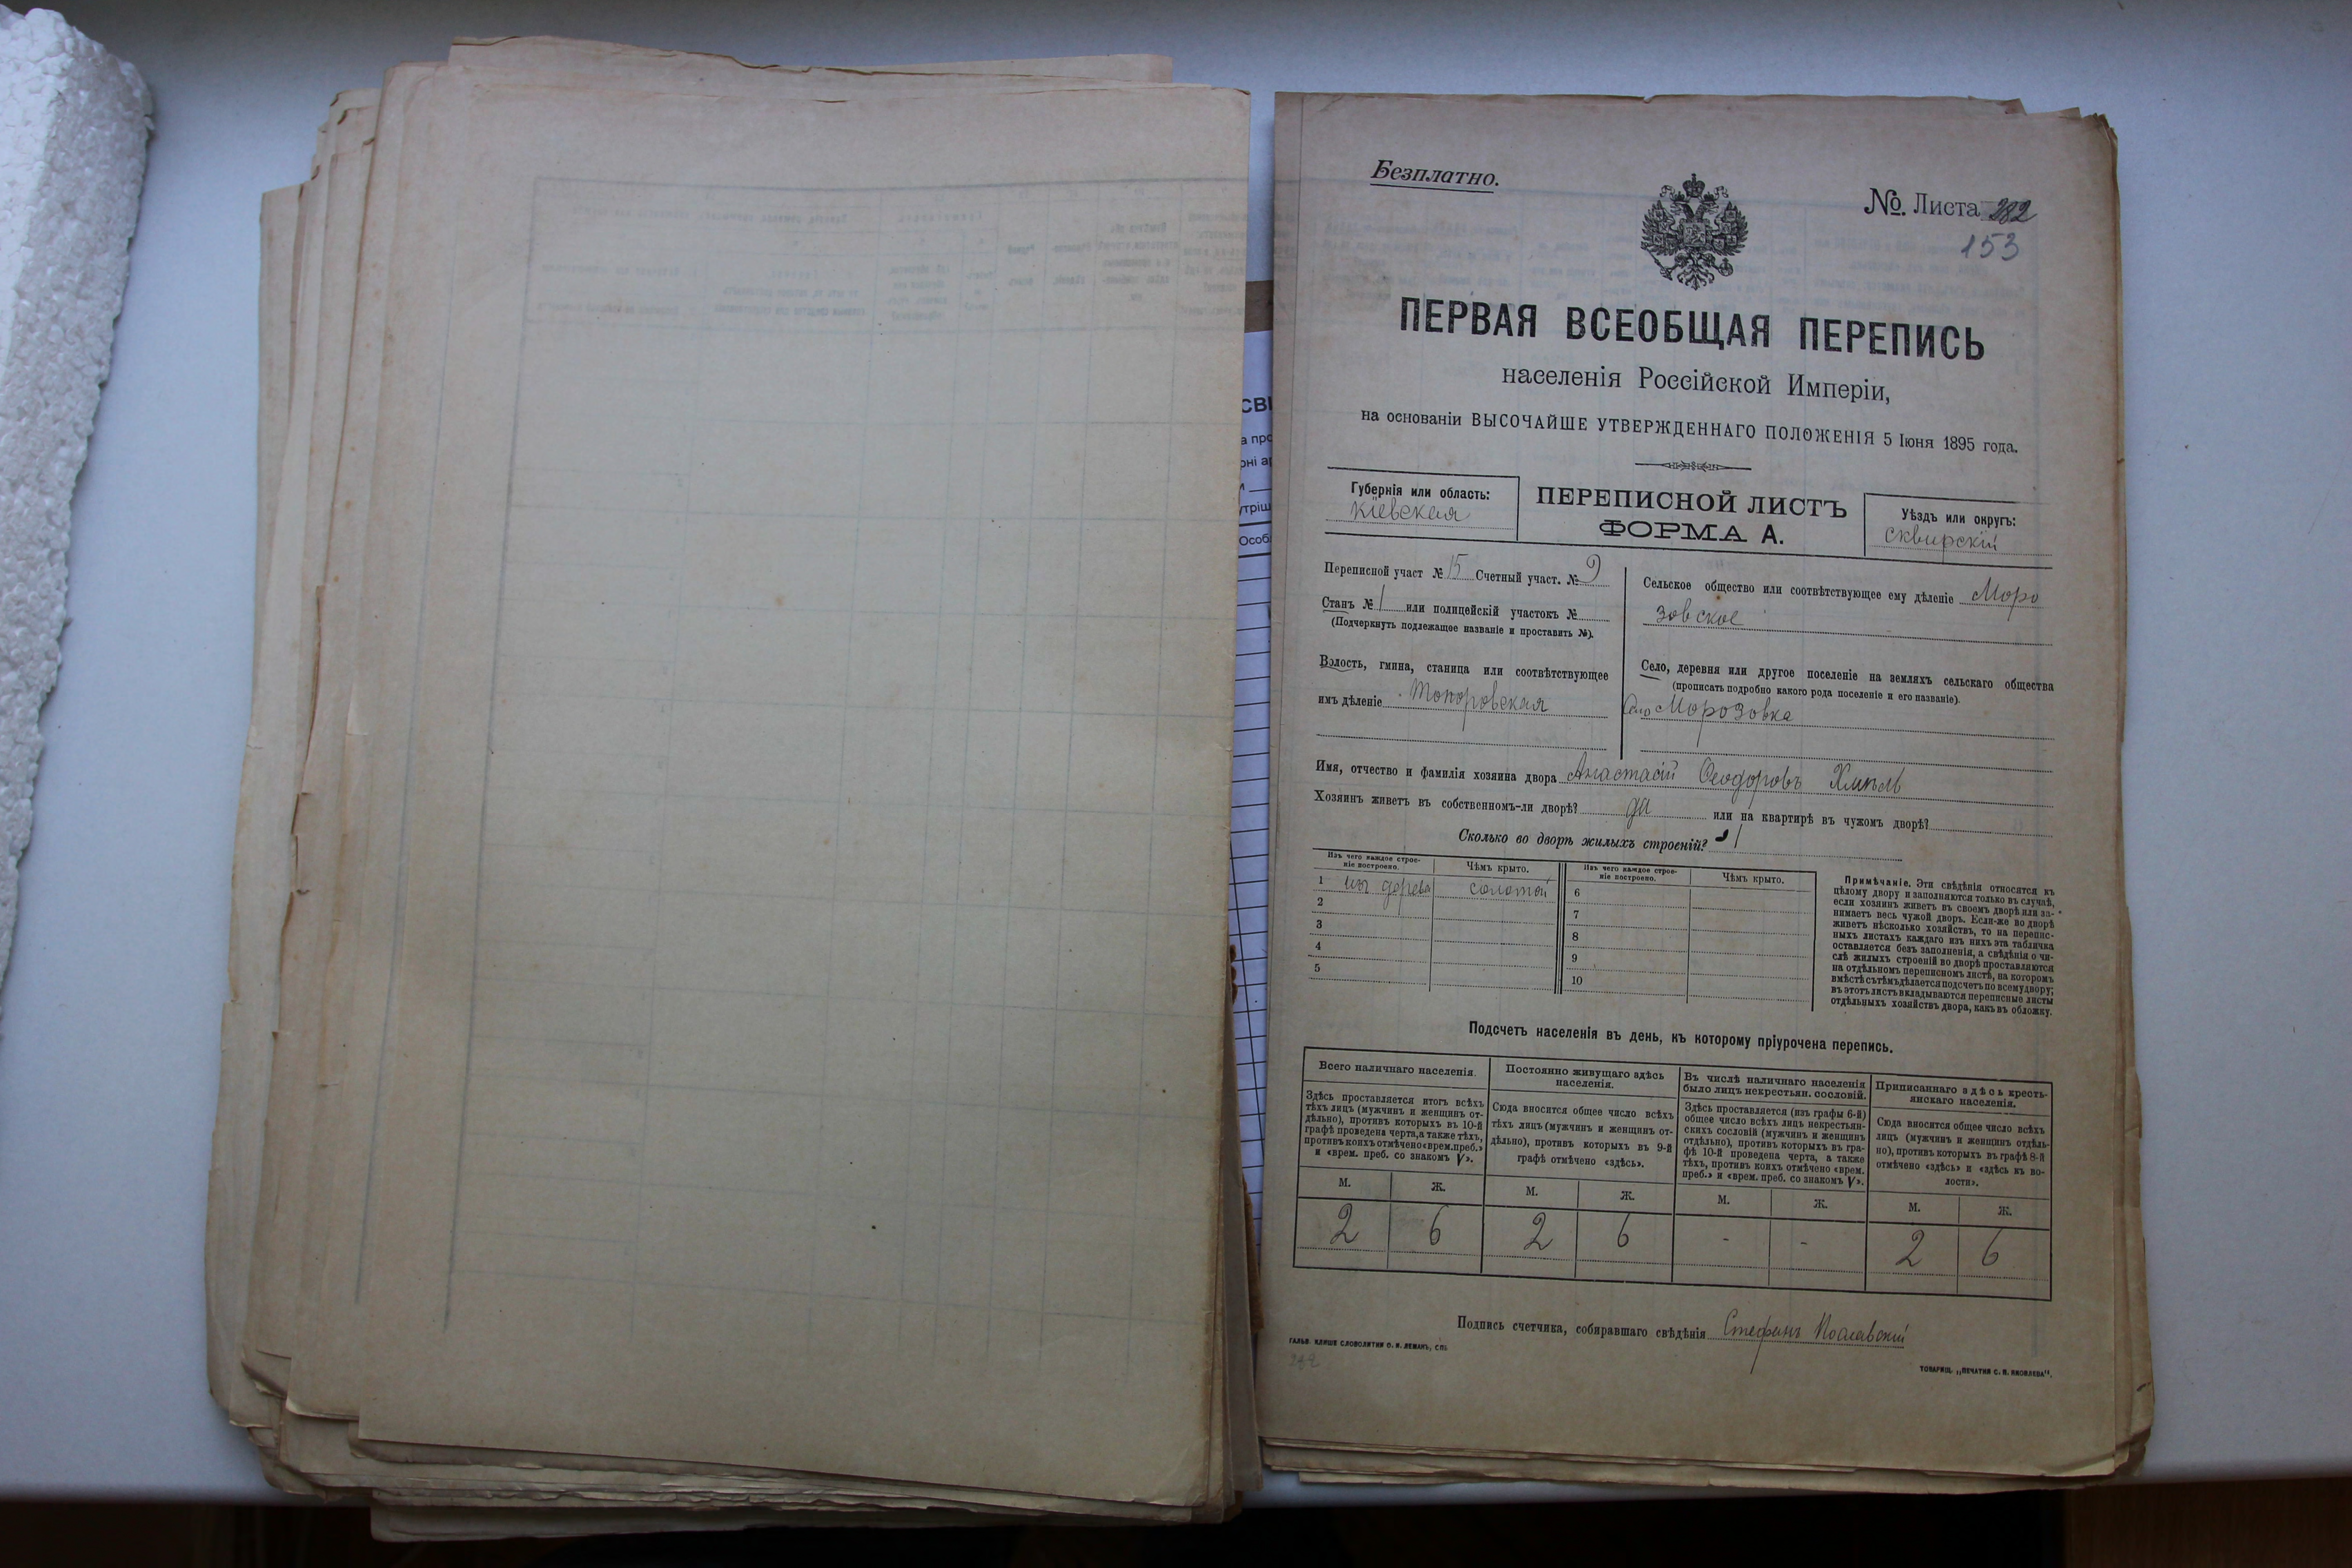 Безплатно.
№. Листа 282
153
ПЕРВАЯ ВСЕОБЩАЯ ПЕРЕПИСЬ
населенія Россійской Имперіи,
на основаніи ВЫСОЧАЙШЕ УТВЕРЖДЕННАГО ПОЛОЖЕНІЯ 5 Іюня 1895 года.
Губернія или область:
Кіевская
ПЕРЕПИСНОЙ ЛИСТЪ
ФОРМА А.
Уѣздъ или округъ:
сквирскій
Переписной участ № 15 Счетный участ. № 9
Станъ № 1 или полицейскій участокъ №
(Подчеркнуть подлежащее названіе и проставить №).
Волость, гмина, станица или соотвѣтствующее
имъ дѣленіе Топоровская
Сельское общество или соотвѣтствующее ему дѣленіе Моро
зовское
Село, деревня или другое поселеніе на земляхъ сельскаго общества
(прописать подробно какого рода поселеніе и его названіе).
Село Морозовка
Имя, отчество и фамилія хозяина двора Анастасій Ѳеодоровъ
Хозяинъ живетъ въ собственномъ-ли дворѣ? да или на квартирѣ въ чужомъ дворѣ?
Сколько во дворѣ жилыхъ строеній? 1
Изъ чего каждое строе-
ніе построено.
Чѣмъ крыто.
Изъ чего каждое строе-
ніе построено.
Чѣмъ крыто.
1 изъ дерева соломой 6
2 7
3 8
4 9
5 10
Примѣчаніе. Эти свѣдѣнія относятся къ
цѣлому двору и заполняются только въ случаѣ,
если хозяинъ живетъ въ своемъ дворѣ или за-
нимаетъ весь чужой дворъ. Если-же во дворѣ
живетъ нѣсколько хозяйствъ, то на перепис-
ныхъ листахъ каждаго изъ нихъ эта табличка
оставляется безъ заполненія, а свѣдѣнія о чи-
слѣ жилыхъ строеній во дворѣ проставляются
на отдѣльномъ переписномъ листѣ, на которомъ
вмѣстѣ съ тѣмъ дѣлается подсчетъ по всему двору;
въ этотъ листъ вкладываются переписные листы
отдѣльныхъ хозяйствъ двора, какъ въ обложку.
Подсчетъ населенія въ день, къ которому пріурочена перепись.
Всего наличнаго населенія.
Здѣсь проставляется итогъ всѣхъ
тѣхъ лицъ (мужчинъ и женщинъ от-
дѣльно), противъ которыхъ въ 10-й
графѣ проведена черта, а также тѣхъ,
противъ коихъ отмѣчено «врем. преб.»
и «врем. преб. со знакомъ V».
Постоянно живущаго здѣсь
населенія.
Сюда вносится общее число всѣхъ
тѣхъ лицъ (мужчинъ и женщинъ от-
дѣльно), противъ которыхъ въ 9-й
графѣ отмѣчено «здѣсь».
Въ числѣ наличнаго населенія
было лицъ некрестьян. сословій.
Здѣсь проставляется (изъ графы 6-й)
общее число всѣхъ лицъ некрестьян-
скихъ сословій (мужчинъ и женщинъ
отдѣльно), противъ которыхъ въ гра-
фѣ 10-й проведена черта, а также
тѣхъ, противъ коихъ отмѣчено «врем.
преб.» и «врем. преб. со знакомъ V».
Приписаннаго здѣсь кресть-
янскаго населенія.
Сюда вносится общее число всѣхъ
лицъ (мужчинъ и женщинъ отдѣль-
но), противъ которыхъ въ графѣ 8-й
отмѣчено «здѣсь» и «здѣсь къ во-
лости».
М. Ж. М. Ж. М. Ж. М. Ж.
2 6 2 6 - - 2 6
Подпись счетчика, собиравшаго свѣдѣнія Стефанъ
ГАЛЬВ. КЛИШЕ СЛОВОЛИТНИ О. И. ЛЕМАНЪ, СПБ.
ТОВАРИЩ. „ПЕЧАТНЯ С. П. ЯКОВЛЕВА".